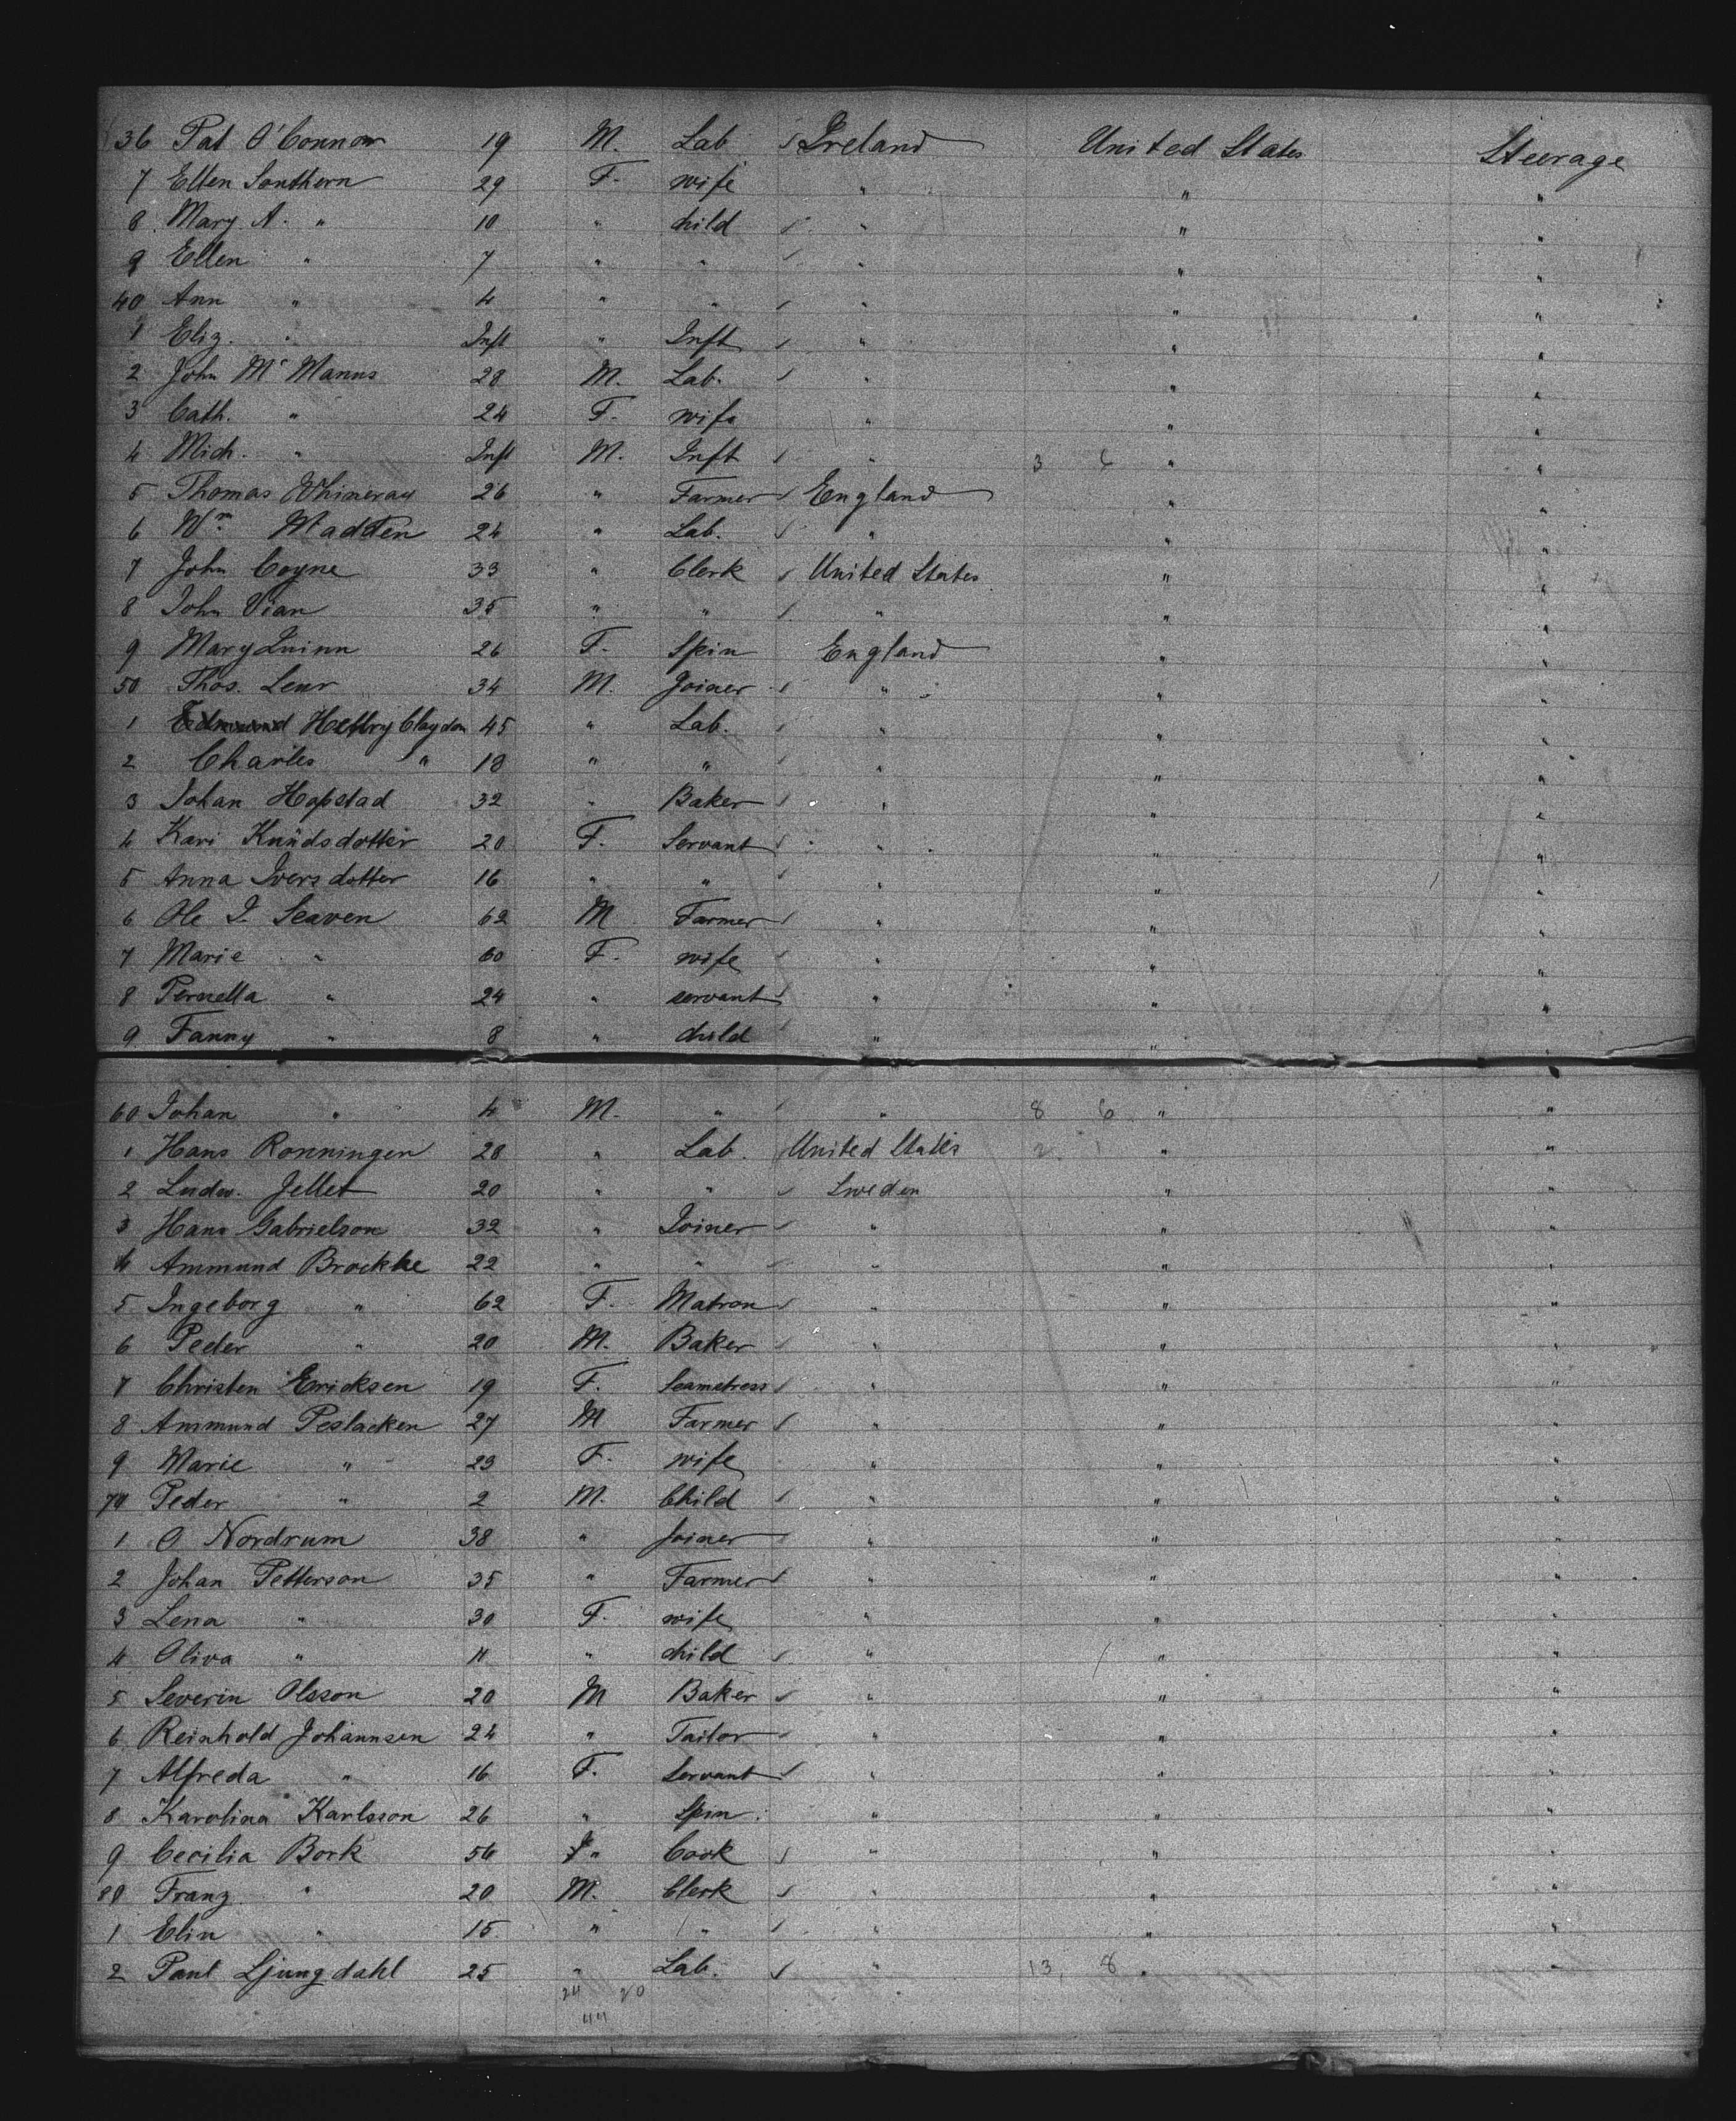 36 Pat O'Connor 19 M. Lab Ireland United States Steerage
7 Ellen Southern 29 F. wife " " "
8 Mary A. " 10 " child " " "
9 Ellen " 7 " " " " "
40 Ann " 4 " " " " "
1 Eliz. " Inft " Inft " " "
2 John McManus 28 M. Lab. " " "
3 Cath. " 24 F. wife " " "
4 Mich. " Inft M. Inft " 3 6 " "
5 Thomas Whineray 26 " Farmer England " "
6 Wm Madden 24 " Lab. " " "
7 John Coyne 33 " Clerk United States " "
8 John Vian 35 " " " " "
9 Mary Quinn 26 F. Spin England " "
50 Thos. Lenr 34 M. Joiner " " "
1 Claydon 45 " Lab. " " "
2 Charles " 18 " " " " "
3 Johan Hopstad 32 " Baker " " "
4 Kari Knüdsdotter 20 F. Servant " " "
5 Anna Iversdotter 16 " " " " "
6 Ole I. Seaven 62 M Farmer " " "
7 Marie " 60 F. wife " " "
8 Pernella " 24 " servant " " "
9 Fanny " 8 " child " " "
60 Johan " 4 M. " " 8 6 " "
1 Hans Ronningen 28 " Lab. United States 2 1 " "
2 Ludw. Jellet 20 " " Sweden " "
3 Hans Gabrielson 32 " Joiner " " "
4 Ammund Brockke 22 " " " " "
5 Ingeborg " 62 F. Matron " " "
6 Peder " 20 M. Baker " " "
7 Christen Ericksen 19 F. Seamstress " " "
8 Ammund Peslacken 27 M Farmer " " "
9 Marie " 23 F. wife " " "
70 Peder " 2 M. Child " " "
1 O Nordrum 38 " Joiner " " "
2 Johan Petterson 35 " Farmer " " "
3 Lena " 30 F. wife " " "
4 Oliva " 11 " child " " "
5 Severin Olsson 20 M Baker " " "
6 Reinhold Johannsen 24 " Tailor " " "
7 Alfreda " 16 F. Servant " " "
8 Karolina Karlsson 26 " Spin. " " "
9 Cecilia Bork 56 " Cook " " "
80 Franz " 20 M. Clerk " " "
1 Elin " 15 " " " " "
2 Paul Ljungdahl 25 " Lab. " 13 8 " "
24 20
44